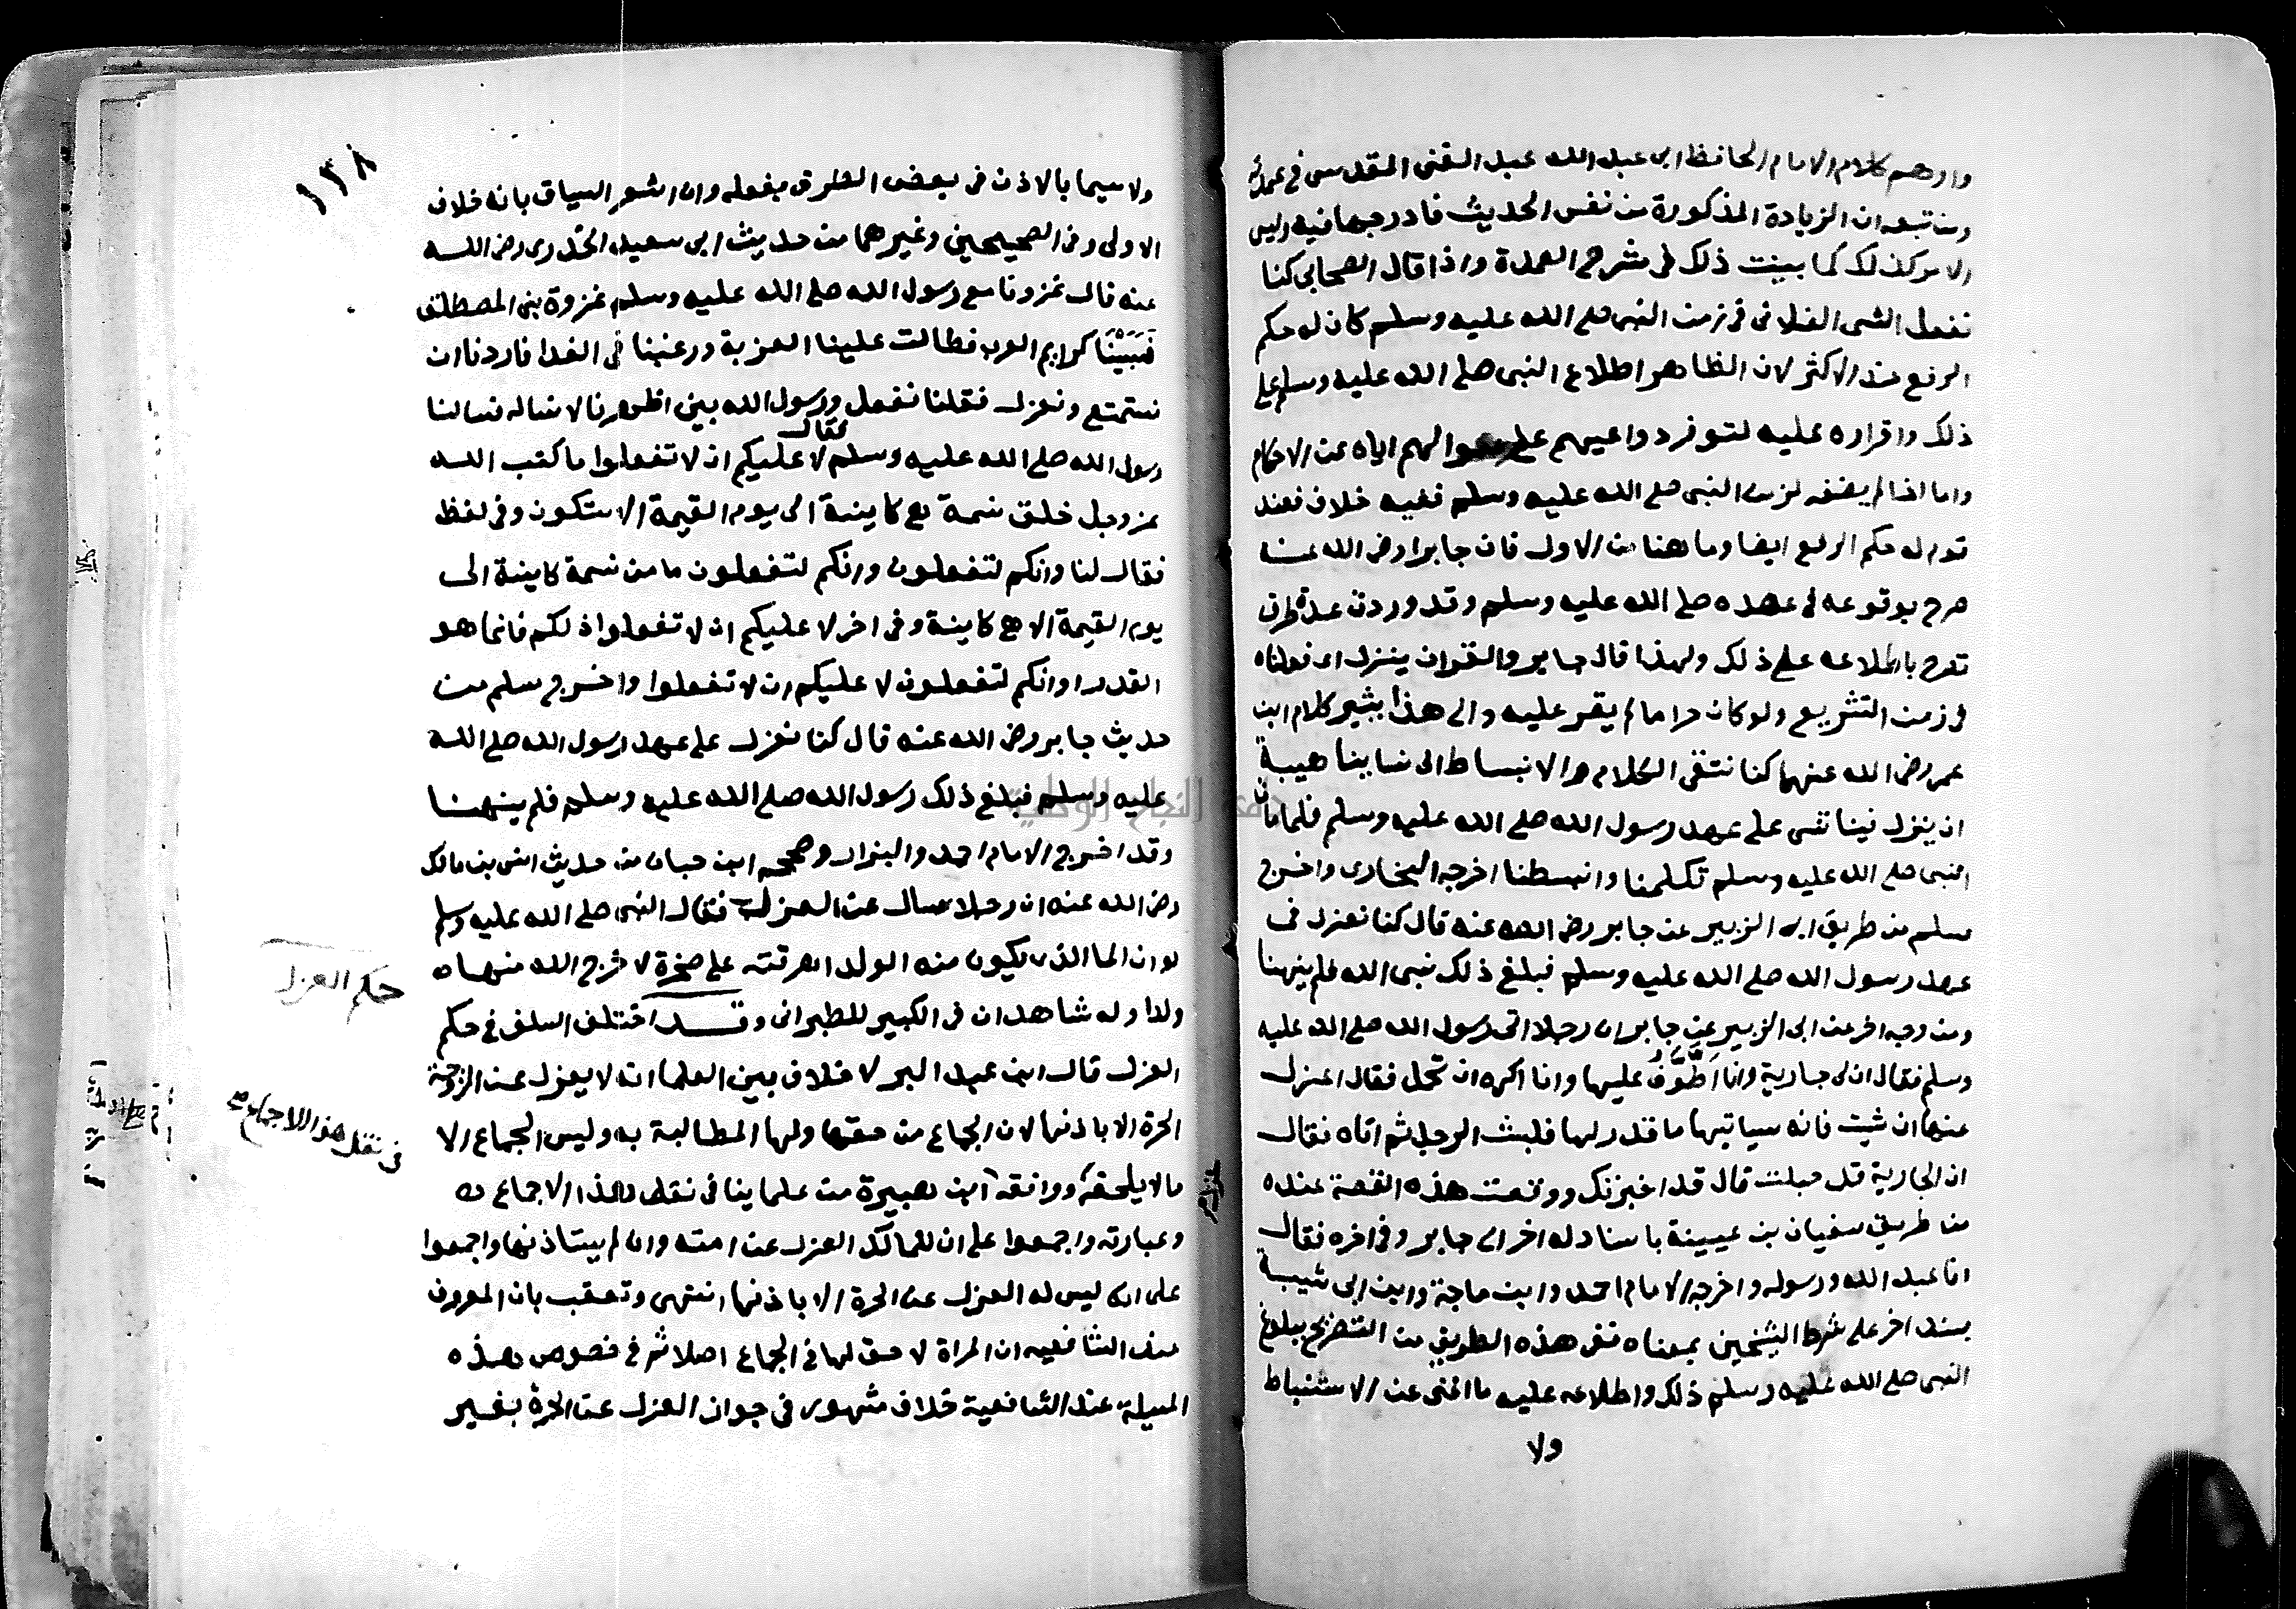 واوهم كلام الامام الحافظ ابى عبد الله عبد الغنى المقدسى فى عمدته
ومن تبعه ان الزيادة المذكورة من نفس الحديث فادرجها فيه وليس
الامر كذلك كما بينت ذلك فى شرح العمدة واذا قال الصحابى كنا
نفعل الشى الفلانى فى زمن النبى صلى الله عليه وسلم كان له حكم
الرفع عند الاكثر لان الظاهر اطلاع النبى صلى الله عليه وسلم على
ذلك واقراره عليه لتوفر دواعيهم على سوالهم اياه عن الاحكام
واما اذا لم يضفه لزمن النبى صلى الله عليه وسلم ففيه خلاف فعند
قوم له حكم الرفع ايضا وما هنا من الاول فان جابرا رضى الله عنه
صرح بوقوعه فى عهده صلى الله عليه وسلم وقد وردت عدة طرق
تصرح باطلاعه على ذلك ولهذا قال جابر والقران ينزل اى فعلناه
فى زمن التشريع ولو كان حراما لم يقر عليه والى هذا يشير كلام ابن
عمر رضى الله عنهما كنا نتقى الكلام والانبساط الى نساينا هيبة
ان ينزل فينا شى على عهد رسول الله صلى الله عليه وسلم فلما مات
النبى صلى الله عليه وسلم تكلمنا وانبسطنا اخرجه البخارى واخرج
مسلم من طريق ابى الزبير عن جابر رضى الله عنه قال كنا نعزل فى
عهد رسول الله صلى الله عليه وسلم فبلغ ذلك نبى الله فلم ينهنا
ومن وجه اخر عن ابى الزبير عن جابر ان رجلا اتى رسول الله صلى الله عليه
وسلم فقال ان لى جارية وانا اَطَّوَّفُ عليها وانا اكره ان تحمل فقال اعزل
عنها ان شيت فانه سياتيها ما قدر لها فلبث الرجل ثم اتاه فقال
ان الجارية قد حبلت قال قد اخبرتك ووقعت هذه القصة عنده
من طريق سفيان بن عيينة باسناد له اخر الى جابر وفى اخره فقال
انا عبد الله ورسوله واخرجه الامام احمد وابن ماجة وابن ابى شيبة
بسند اخر على شرط الشيخين بمعناه ففى هذه الطريق من التصريح ببلوغ
النبى صلى الله عليه وسلم ذلك واطلاعه عليه ما اغنى عن الاستنباط
ولا
١٣٨
ولا سيما بالاذن فى بعض الطرق بفعله وان اشعر السياق بانه خلاف
الاولى وفى الصحيحين وغيرهما من حديث ابى سعيد الخدرى رضى الله
عنه قال غزونا مع رسول الله صلى الله عليه وسلم غزوة بنى المصطلق
فسبينا كرايم العرب فطالت علينا العزبة ورغبنا فى الفدا فاردنا ان
نستمتع ونعزل فقلنا نفعل ورسول الله بين اظهرنا لا نساله فسالنا
رسول الله صلى الله عليه وسلم فقال لا عليكم ان لا تفعلوا ما كتب الله
عز وجل خلق نسمة هى كاينة الى يوم القيمة الا ستكون وفى لفظ
فقال لنا وانكم لتفعلون وانكم لتفعلون ما من نسمة كاينة الى
يوم القيمة الا هى كاينة وفى اخر لا عليكم ان لا تفعلوا ذلكم فانما هو
القدر اوانكم لتفعلون لا عليكم ان لا تفعلوا واخرج مسلم من
حديث جابر رضى الله عنه قال كنا نعزل على عهد رسول الله صلى الله
عليه وسلم فبلغ ذلك رسول الله صلى الله عليه وسلم فلم ينهنا
وقد اخرج الامام احمد والبزار وصححه ابن حبان من حديث انس بن مالك
رضى الله عنه ان رجلا سال عن العزل فقال النبى صلى الله عليه وسلم
لو ان الما الذى يكون منه الولد اهرقته على صخرة لاخرج الله منها
ولدا وله شاهدان فى الكبير للطبرانى وقد اختلف السلف فى حكم
العزل قال ابن عبد البر لا خلاف بين العلما انه لا يعزل عن الزوجة
الحرة الا باذنها لان الجماع من حقها ولها المطالبة به وليس الجماع الا
ما لا يلحقه ووافقه ابن هبيرة من علماينا فى نقل هذا الاجماع
وعبارته واجمعوا على ان للمالك العزل عن امته وان لم يستاذنها واجمعوا
على انه ليس له العزل عن الحرة الا باذنها انتهى وتعقب بان المعروف
عند الشافعيه ان المراة لا حق لها فى الجماع اصلا ثم فى خصوص هذه
المسيلة عند الشافعية خلاف مشهور فى جواز العزل عن الحرة بغير
حكم العزل
فى نقل هذا الاجماع
جامعة النجاح الوطنية